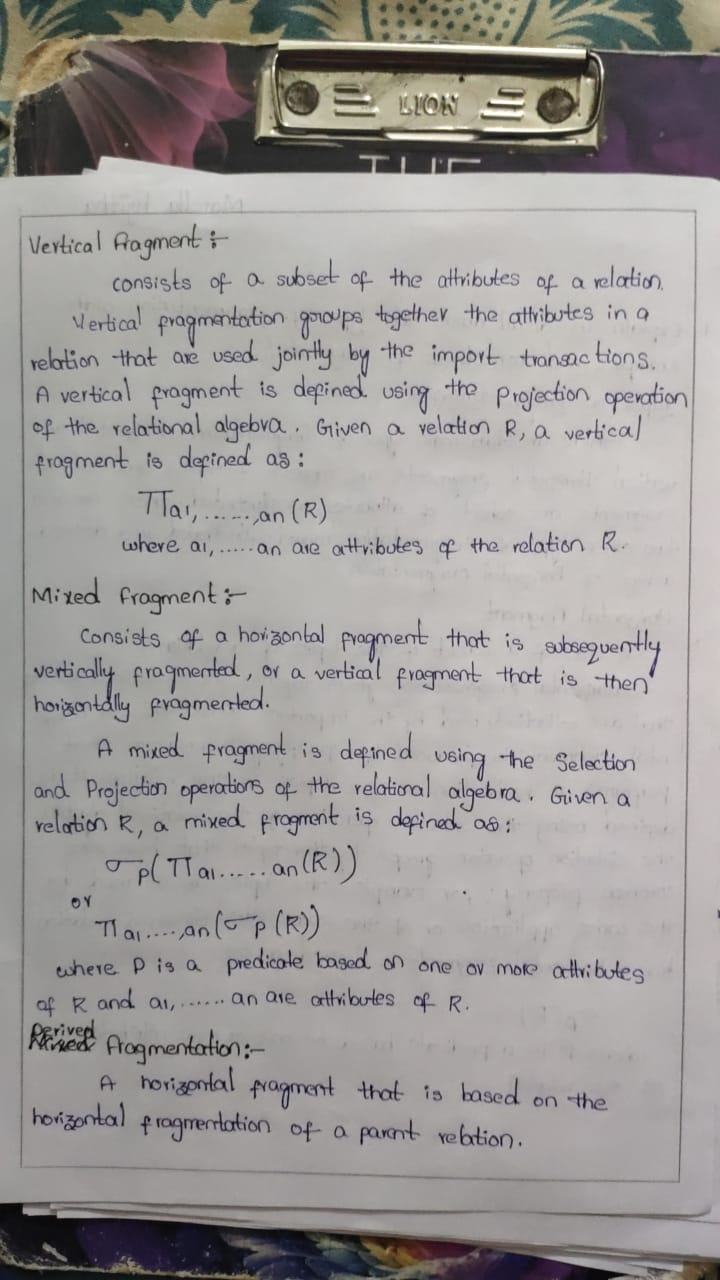 LION
THE
Vertical fragment :-
consists of a subset of the attributes of a relation.
Vertical fragmentation groups together the attributes in a
relation that are used jointly by the import transactions.
A vertical fragment is defined using the projection operation
of the relational algebra. Given a relation R, a vertical
fragment is defined as :
Πa1, ......,an (R)
where a1, ..... an are attributes of the relation R.
Mixed fragment :-
Consists of a horizontal fragment that is subsequently
vertically fragmented, or a vertical fragment that is then
horizontally fragmented.
A mixed fragment is defined using the Selection
and Projection operations of the relational algebra. Given a
relation R, a mixed fragment is defined as :
σp(Πa1......an(R))
or
Πa1....,an(σp(R))
where P is a predicate based on one or more attributes
of R and a1, ...... an are attributes of R.
Derived
fragmentation:-
A horizontal fragment that is based on the
horizontal fragmentation of a parent relation.